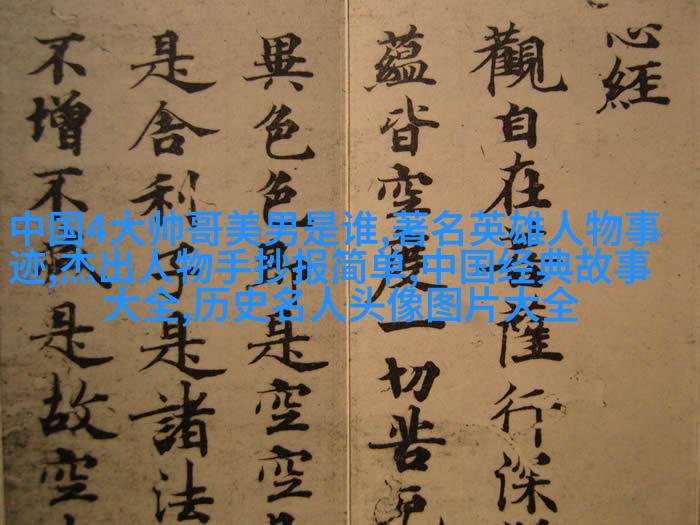 心經
觀自在菩薩行深
蘊皆空度一切苦厄
異色色即是空空
是舍利子是諸法
不增不減是故空
中国4大帅哥美男是谁,著名英雄人物事
迹,杰出人物手抄报简单,中国经典故事
大全,历史名人头像图片大全